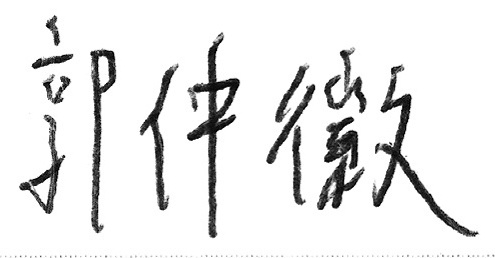 郭仲徽